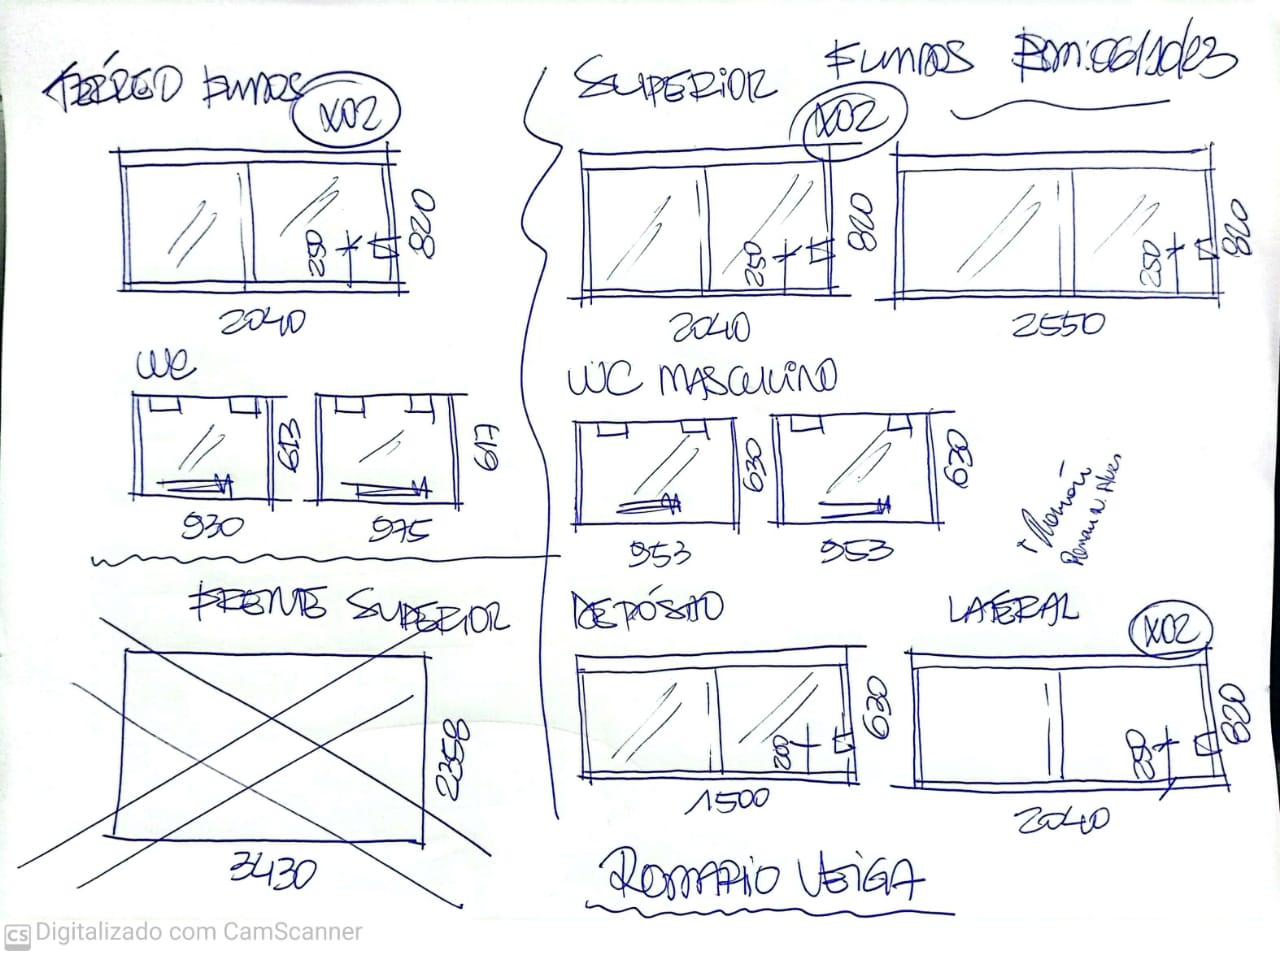 TÉRREO FUNDOS
X02
250
820
2040
WC
613
930
617
975
FRENTE SUPERIOR
2358
3430
SUPERIOR FUNDOS
X02
250
820
2040
250
820
2550
WC MASCULINO
630
953
630
953
DEPÓSITO
200
630
1500
LATERAL
X02
250
820
2040
ROMARIO VEIGA
CS Digitalizado com CamScanner